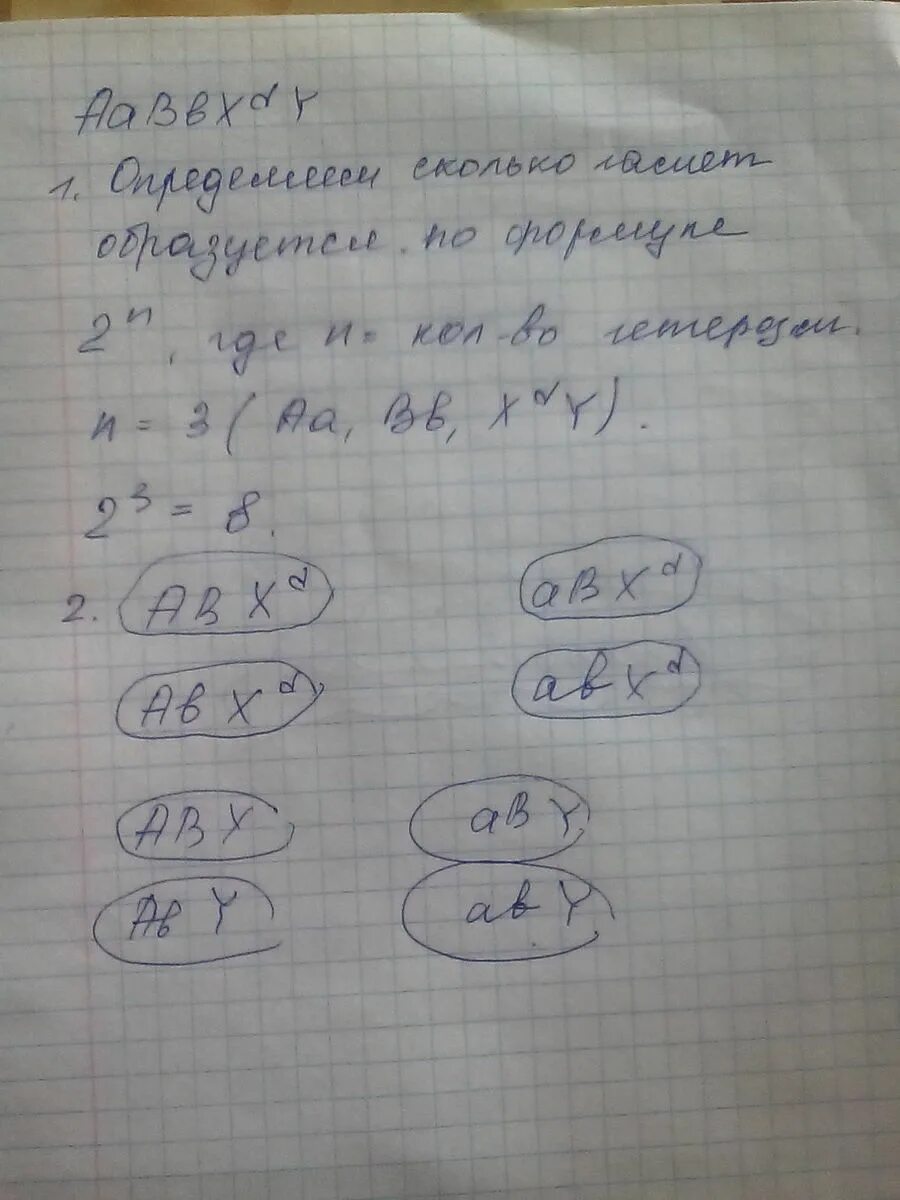 AaBвX^d Y
1. Определим сколько гамет
образуется по формуле
2^n, где n = кол-во гетерозиг.
n = 3 ( Aa, Bв, X^d Y).
2^3 = 8.
2. ABX^d aBX^d
AвX^d aвX^d
ABY aBY
AвY aвY